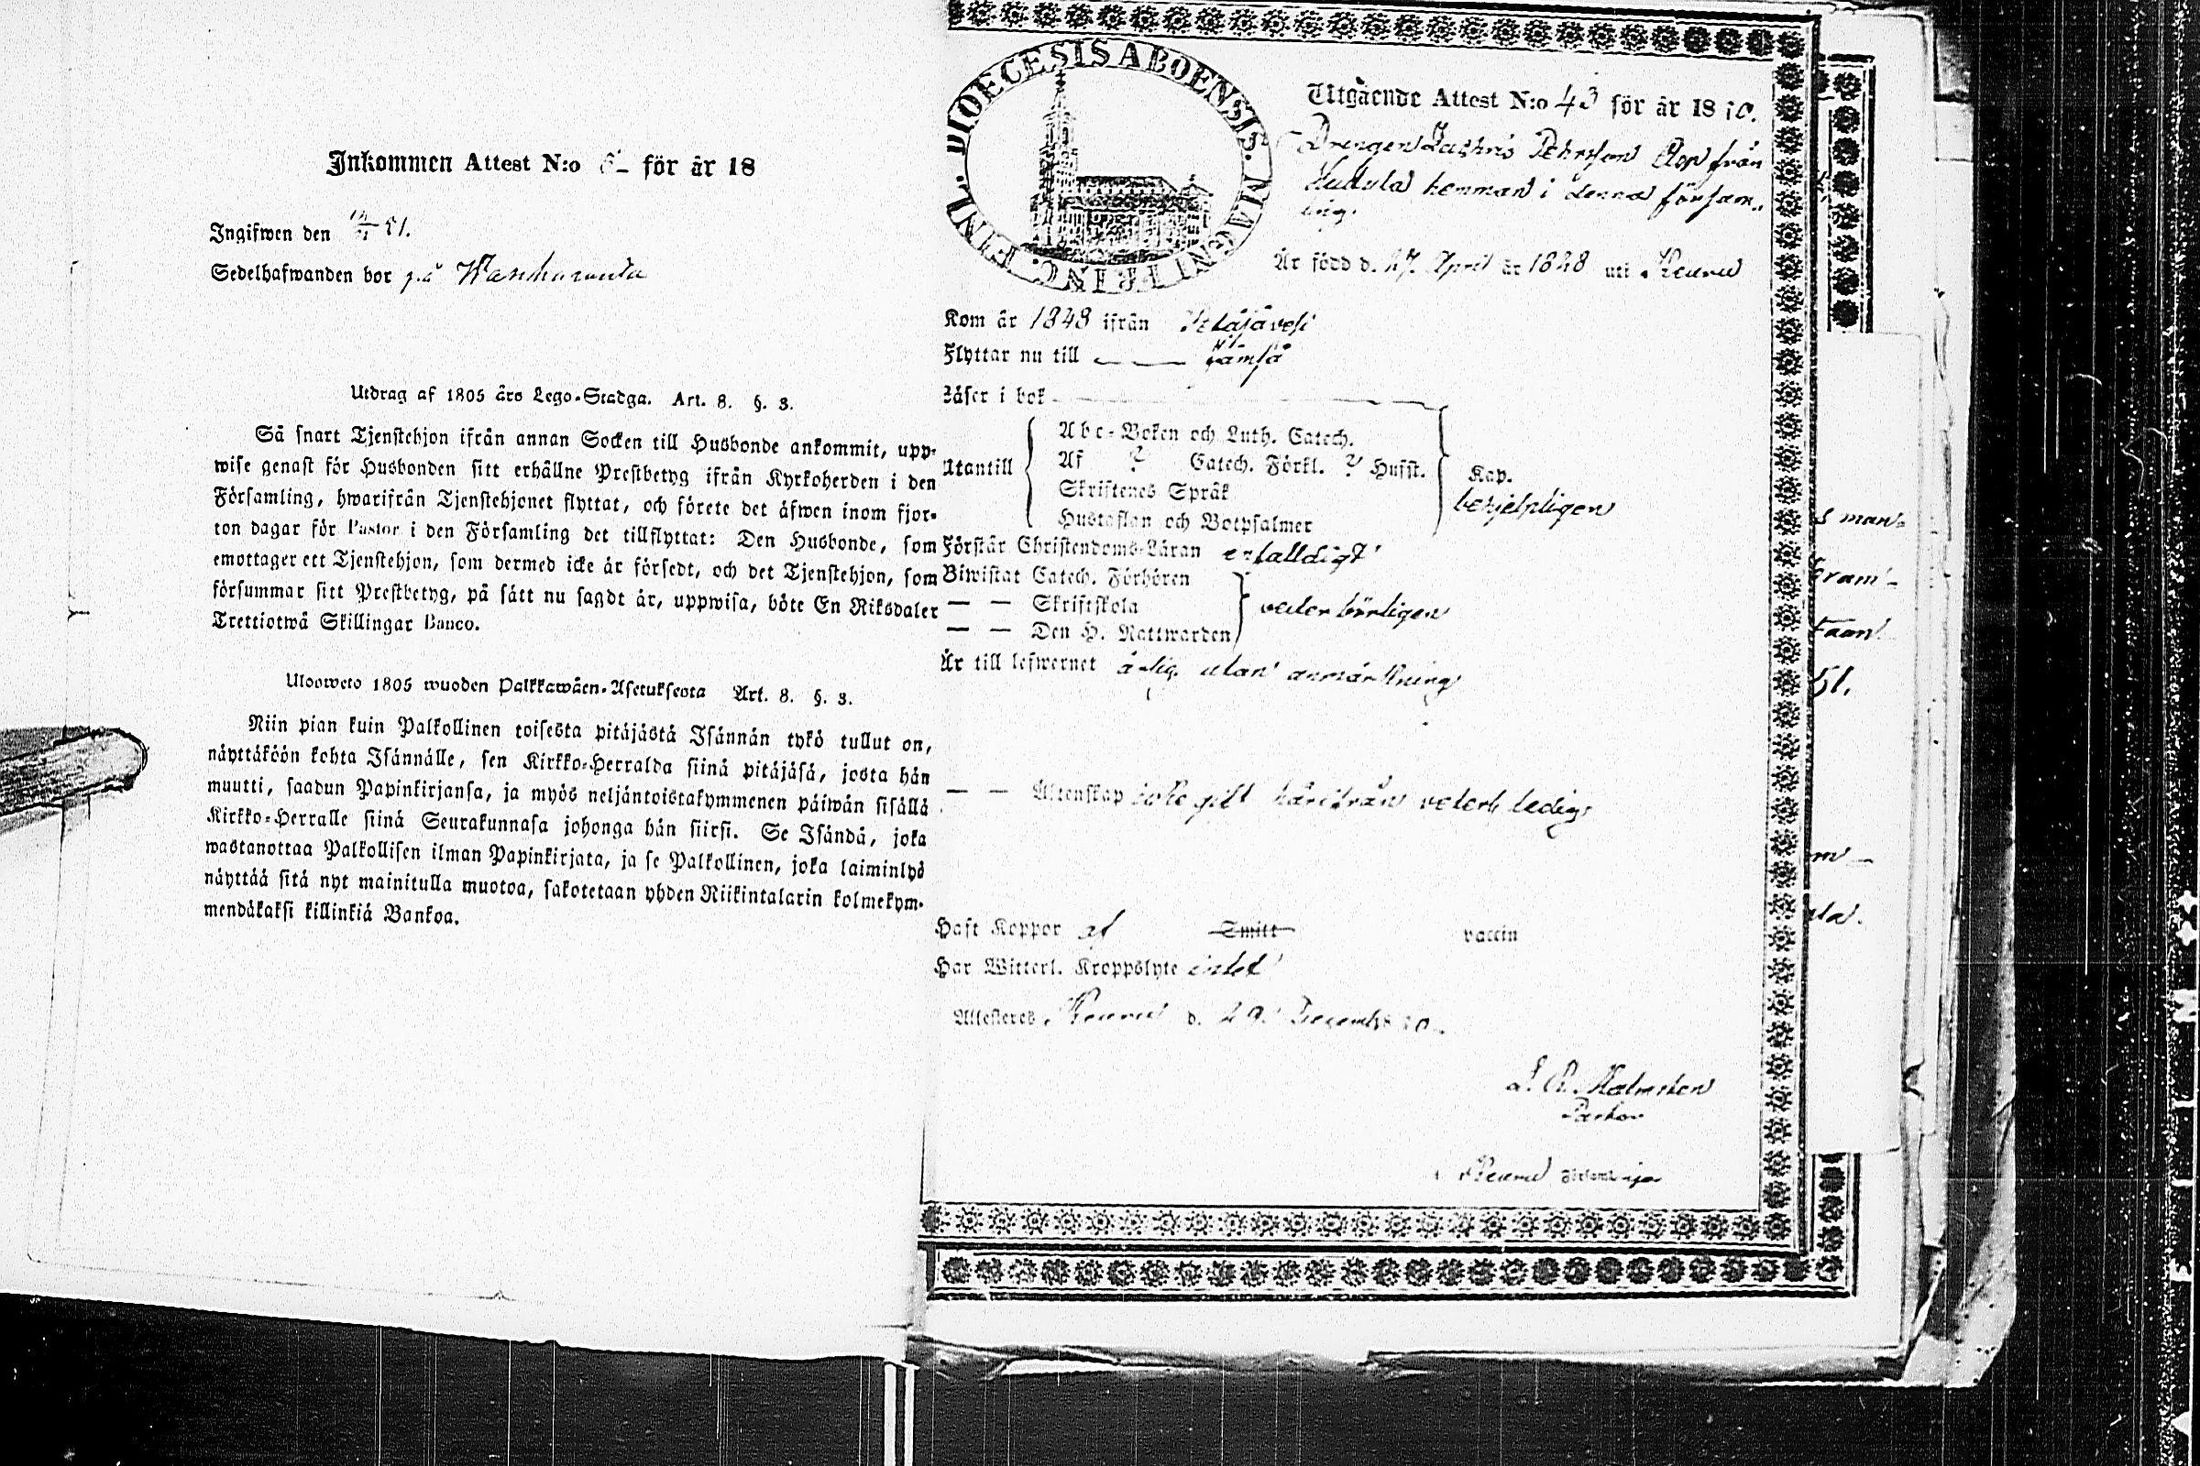 Inkommen Attest N:o 6 för år 18
Ingifwen den 51.
Sedelhafwanden bor på
Utdrag af 1805 års Lego-Stadga. Art. 8. §. 3.
Så snart Tjenstehjon ifrån annan Socken till Husbonde ankommit, upp-
wise genast för Husbonden sitt erhållne Prestbetyg ifrån Kyrkoherden i den
Församling, hwarifrån Tjenstehjonet flyttat, och förete det äfwen inom fjor-
ton dagar för Pastor i den Församling det tillflyttat: Den Husbonde, som
emottager ett Tjenstehjon, som dermed icke är försedt, och det Tjenstehjon, som
försummar sitt Prestbetyg, på sätt nu sagdt är, uppwisa, böte En Riksdaler
Trettiotwå Skillingar Banco.
Ulosweto 1805 wuoden Palkkawäen-Asetuksesta Art. 8. §. 3.
Niin pian kuin Palkollinen toisesta pitäjästä Isännän tykö tullut on,
näyttäköön kohta Isännälle, sen Kirkko-Herralda siinä pitäjäsä, josta hän
muutti, saadun Papinkirjansa, ja myös neljäntoistakymmenen päiwän sisällä
Kirkko-Herralle siinä Seurakunnasa johonga hän siirsi. Se Isändä, joka
wastanottaa Palkollisen ilman Papinkirjata, ja se Palkollinen, joka laiminlyö
näyttää sitä nyt mainitulla muotoa, sakotetaan yhden Riikintalarin kolmekym-
mendäkaksi killinkiä Bankoa.
DIOECESIS ABOENSIS. MAGNI PRINC. FINL.
Utgående Attest N:o 43 för år 1850.
Drengen Zachris Pehrsson från
hemman i denna försam-
ling.
Är född d. 27 April år 1828 uti Keuru
Kom år 1848 ifrån Petäjävesi
Flyttar nu till Jämsä
Läser i bok
Utantill
Abc-Boken och Luth. Catech.
Af ? Catech. Förkl. ? Husst.
Skriftenes Språk
Hustaflan och Botpsalmer
Kap.
behjelpligen
Förstår Christendoms-Läran enfalldigt
Biwistat Catech. Förhören
— — Skriftskola
— — Den H. Nattwarden
vederbörligen
Är till lefwernet ärlig utan anmärkning
— — Äktenskap icke gift härifrån veterl. ledig
Haft Koppor af Smitt vaccin
Har Witterl. Kroppslyte intet
Attesteras Keuru d. 29 Decemb. 50.
Malmsten
Pastor
i Keuru Församlinga